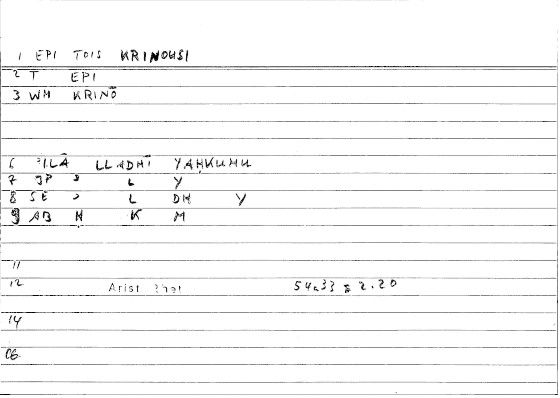 1 EPI TOIS KRINOUSI
2 T EPI
3 WM KRINŌ
6 ʾILĀ LLADHĪ YAḤKUMU
7 JP ʾ L Y
8 SE ʾ L DH Y
9 AB H K M
11
12 Arist Rhet 54a33 2.20
14
06